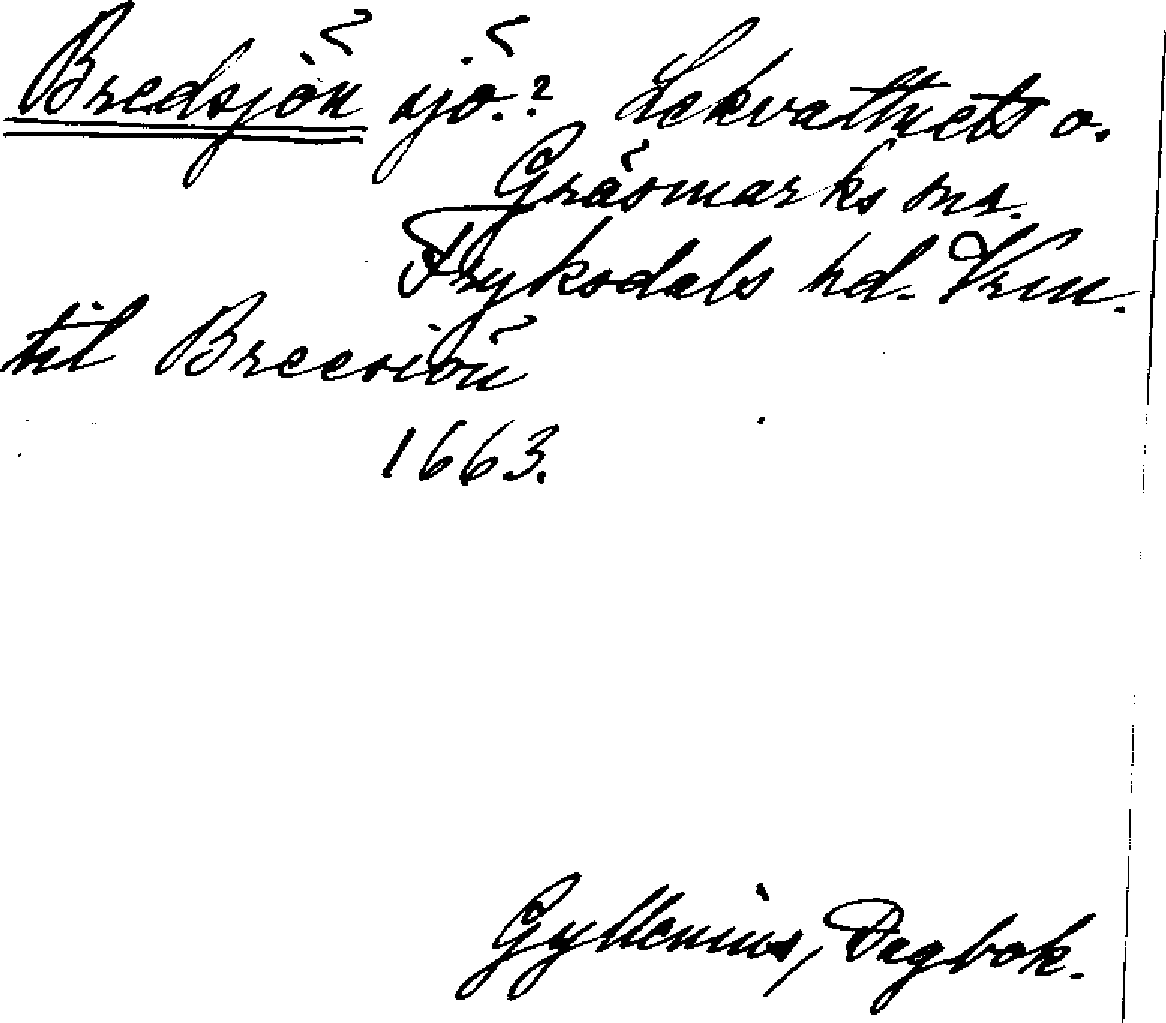 Bredsjön sjö.? Lekvattnets o.
Gräsmarks snr.
Fryksdals hd. Vrm.
til Breesiön
1663.
Gyllenius, Dagbok.